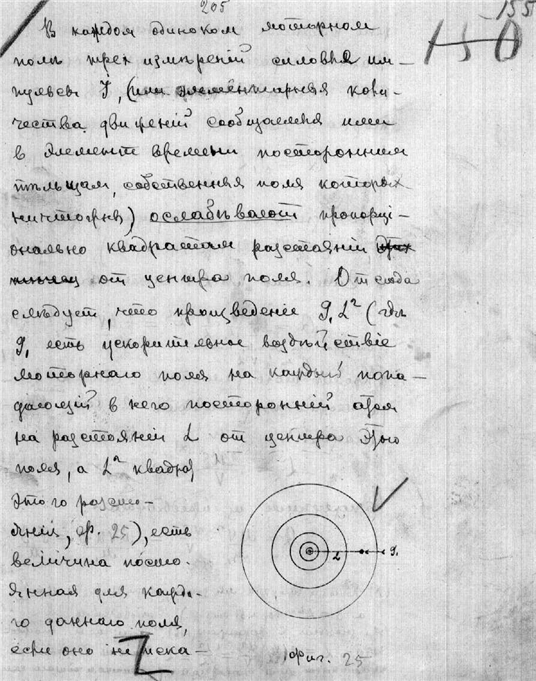 205
155
150
В каждом одиноком моторном
поле трех измѣреній силовыя им-
пульсы J, (или элементарныя коли-
чества движеній сообщаемыя ими
в элемент времени посторонним
тѣльцам, собственныя поля которых
ничтожны) ослабѣвают пропорці-
онально квадратам разстояній
от центра поля. Отсюда
слѣдует, что произведеніе g, L² (гдѣ
g, есть ускорительное воздѣйствіе
моторнаго поля на каждый попа-
дающій в него посторонній атом
на разстояніи L от центра этого
поля, а L² квадрат
этого разсто-
янія, ф. 25), есть
величина посто-
янная для кажда-
го даннаго поля,
если оно не иска-
L
g,
Фиг. 25